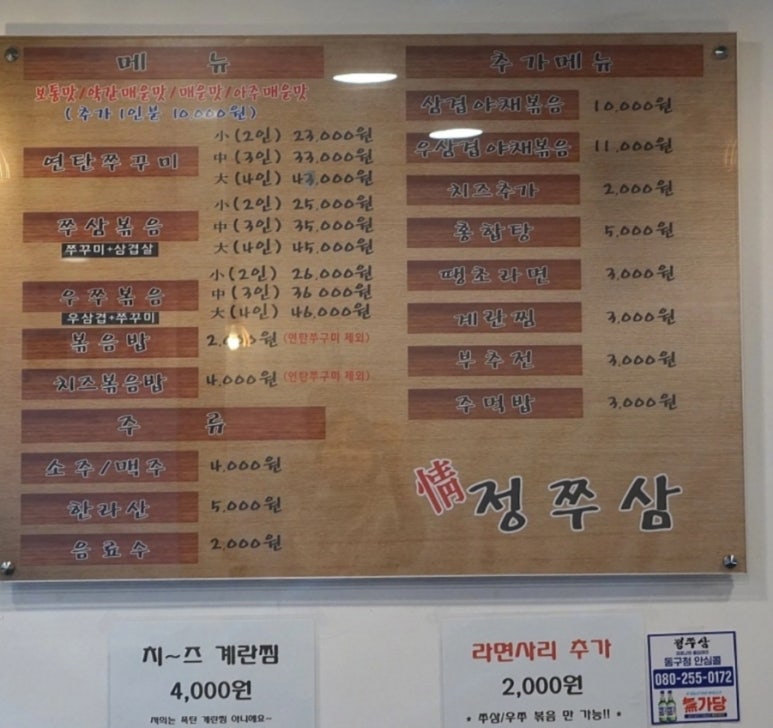 메 뉴
보통맛/약간매운맛/매운맛/아주매운맛
(추가 1인분 10,000원)
연탄쭈꾸미
小(2인) 23,000원
中(3인) 33,000원
大(4인) 43,000원
쭈삼볶음
쭈꾸미+삼겹살
小(2인) 25,000원
中(3인) 35,000원
大(4인) 45,000원
우쭈볶음
우삼겹+쭈꾸미
小(2인) 26,000원
中(3인) 36,000원
大(4인) 46,000원
볶음밥 2,000원 (연탄쭈구미 제외)
치즈볶음밥 4,000원 (연탄쭈구미 제외)
주 류
소주/맥주 4,000원
한라산 5,000원
음료수 2,000원
추가메뉴
삼겹야채볶음 10,000원
우삼겹야채볶음 11,000원
치즈추가 2,000원
홍합탕 5,000원
땡초라면 3,000원
계란찜 3,000원
부추전 3,000원
주먹밥 3,000원
情 정쭈삼
치~즈 계란찜
4,000원
저의는 폭탄 계란찜 아니에요~
라면사리 추가
2,000원
* 쭈삼/우쭈 볶음 만 가능!! *
정쭈삼
동구청 안심콜
080-255-0172
無가당